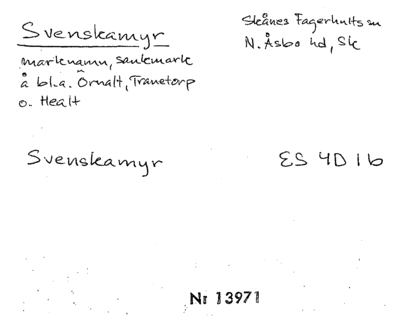 Svenskamyr
Skånes Fagerhults sn
N. Åsbo hd, Sk
marknamn, sankmark
å bl.a. Örnalt, Tranetorp
o. Healt
Svenskamyr
ES 4D 1b
Nr 13971